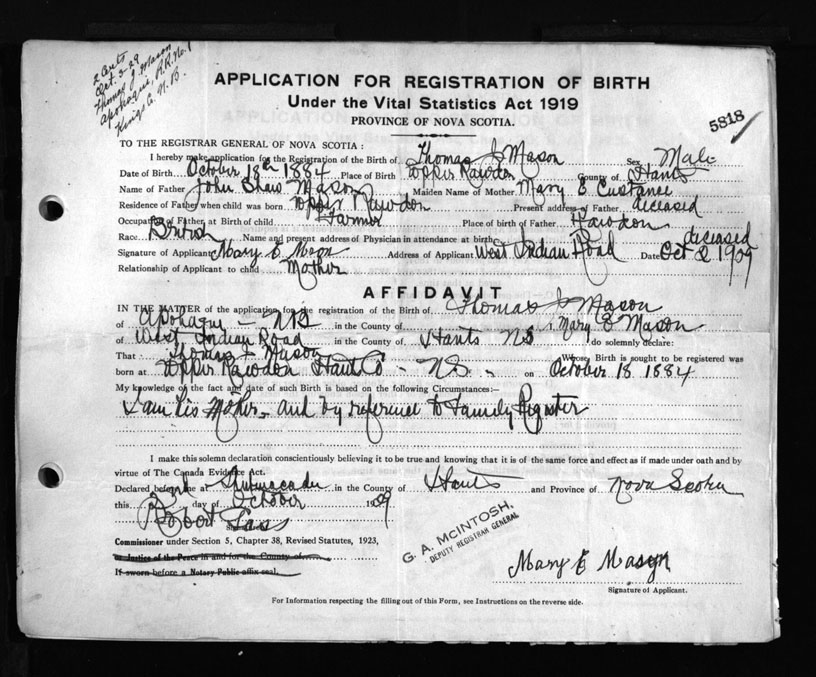 2 Certs
Oct. 3-29
Thomas J. Mason
Apohaqui, R.R. No. 1
Kings Co. N.B.
APPLICATION FOR REGISTRATION OF BIRTH
Under the Vital Statistics Act 1919
PROVINCE OF NOVA SCOTIA.
5818
TO THE REGISTRAR GENERAL OF NOVA SCOTIA:
I hereby make application for the Registration of the Birth of Thomas J Mason Sex Male
Date of Birth October 18th 1884 Place of Birth Upper Rawdon County of Hants
Name of Father John Shaw Mason Maiden Name of Mother Mary E Custance
Residence of Father when child was born Upper Rawdon Present address of Father deceased
Occupation of Father at Birth of child Farmer Place of birth of Father Rawdon
Race British Name and present address of Physician in attendance at birth deceased
Signature of Applicant Mary E Mason Address of Applicant West Indian Road Date Oct 2 1929
Relationship of Applicant to child Mother
AFFIDAVIT
IN THE MATTER of the application for the registration of the Birth of Thomas J Mason
of Apohaqui - NB in the County of I, Mary E Mason
of West Indian Road in the County of Hants NS do solemnly declare:
That Thomas J Mason Whose Birth is sought to be registered was
born at Upper Rawdon Hants Co - NS. on October 18 1884
My knowledge of the fact and date of such Birth is based on the following Circumstances:—
I am his Mother - and by reference to Family Register
I make this solemn declaration conscientiously believing it to be true and knowing that it is of the same force and effect as if made under oath and by
virtue of The Canada Evidence Act.
Declared before me at Shubenacadie in the County of Hants and Province of Nova Scotia
this 2nd day of October 1929
Robert
Commissioner under Section 5, Chapter 38, Revised Statutes, 1923,
or Justice of the Peace in and for the County of
If sworn before a Notary Public affix seal.
G. A. McINTOSH,
DEPUTY REGISTRAR GENERAL
Mary E Mason
Signature of Applicant.
For Information respecting the filling out of this Form, see Instructions on the reverse side.